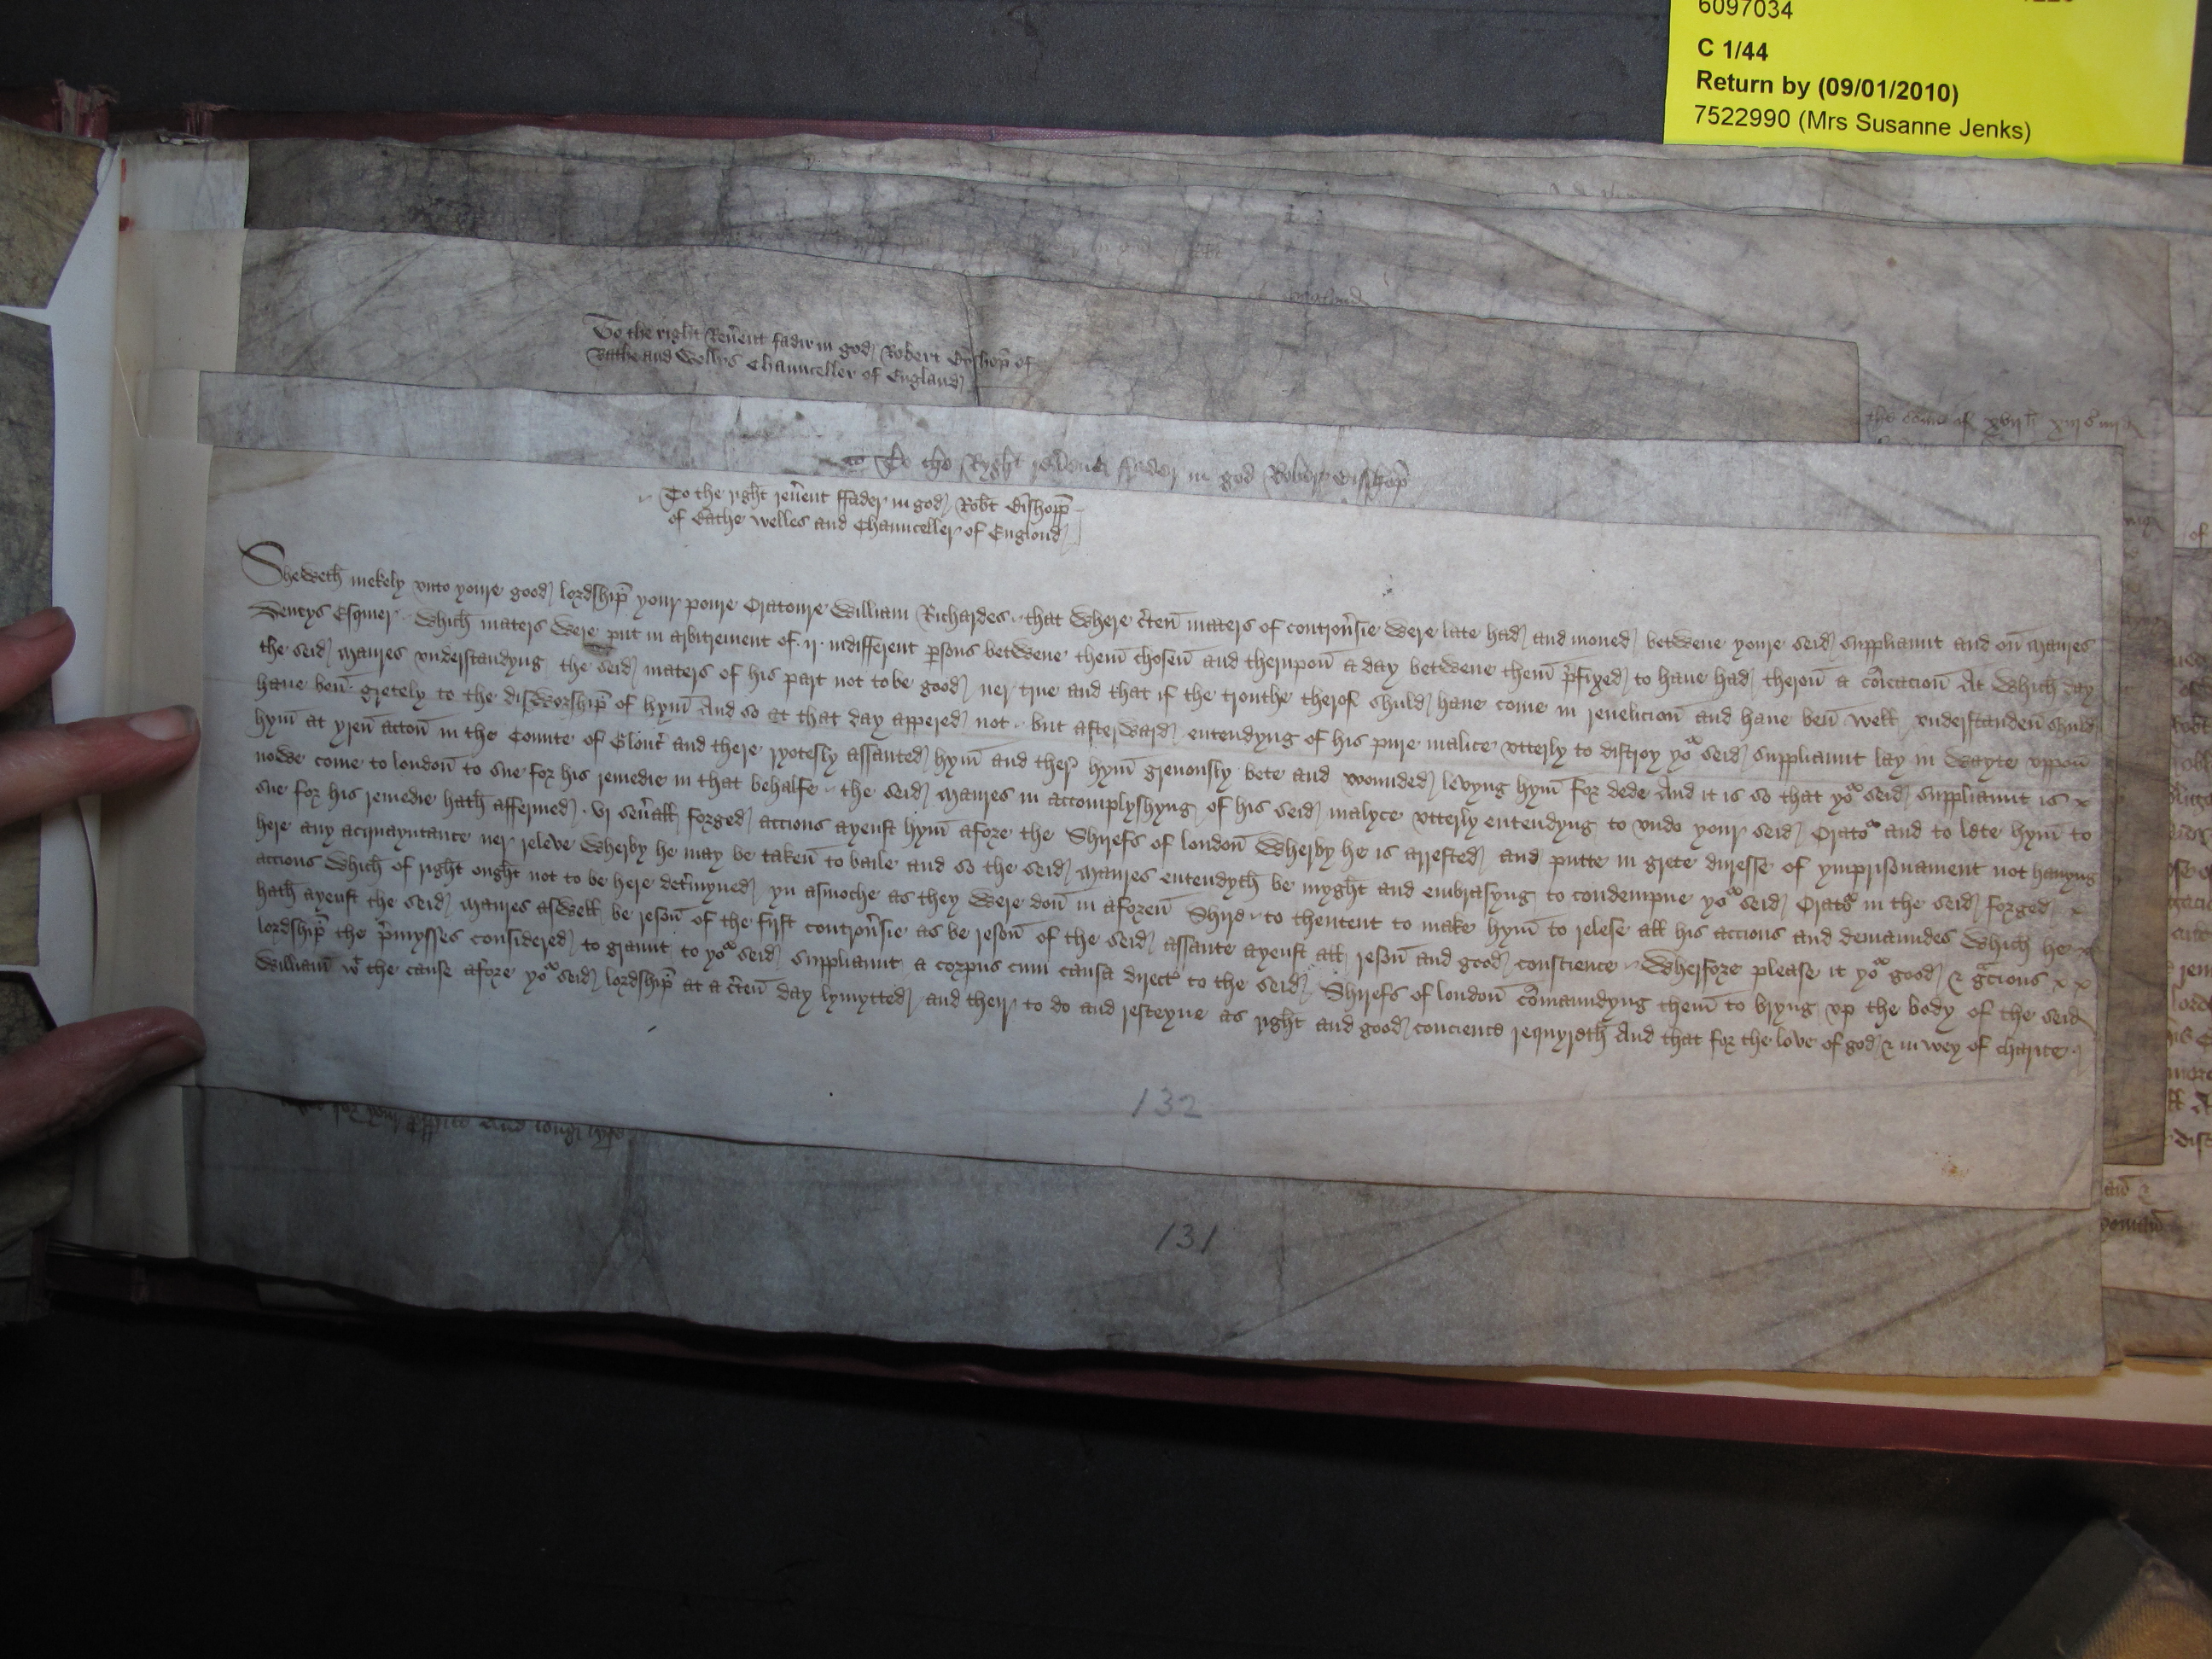 6097034
C 1/44
Return by (09/01/2010)
7522990 (Mrs Susanne Jenks)
To the right Reuerent fadir in god Robert Bysshop of
Bathe and Wellys Chaunceller of England
the some of xvij li xiij s iiij d
To the Ryght reverent fader in god Robert Bisshop
To the right reuerent ffader in god Robt Bisshopp
of Bathe Welles and Chaunceller of Englond
Sheweth mekely vnto youre good lordship your poure Oratoure William Richardes that where certen maters of controuersie were late had and moued betwene youre seid suppliaunt and on Maures
Denys Esquier Which maters were put in arbitrement of ij indifferent persons betwene them chosen and therupon a day betwene them prefixed to haue had theron a comicacion At Which day
the seid Maures vnderstandyng the seid maters of his part not to be good ner true and that if the trouthe therof shuld haue come in and haue ben well vnderstanden shuld
haue ben gretely to the disworship of hym And so at that day appered not but afterward entendyng of his pure malice vtterly to distroy your seid suppliaunt lay in wayte vppon
hym at yren acton in the Counte of Glouc and there ryotesly assauted hym and ther hym greuously bete and wounded levyng hym for dede And it is so that your seid suppliaunt is x
nowe come to london to sue for his remedie in that behalfe the seid Maures in accomplyshyng of his seid malyce vtterly entendyng to vndo your seid Orator and to lete hym to
sue for his remedie hath affermed vj seuerall forged accions ayenst hym afore the Shirefs of london Wherby he is arrested and putte in grete duresse of ymprisonament not hauyng
here any acquayntance ner releve Wherby he may be taken to baile and so the seid Maures entendyth be myght and embrasyng to condempne your seid Orator in the seid forged x
accions Which of right ought not to be here determyned yn asmoche as they were don in aforen Shire to thentent to make hym to relese all his accions and demaundes Which he x
hath ayenst the seid Maures aswell be reson of the first controuersie as be reson of the seid assaute ayenst all reson and good conscience Wherfore please it your good & gracious x x
lordship the premysses considered to graunt to your seid suppliaunt a corpus cum causa direct to the seid Shirefs of london comaundyng them to bryng vp the body of the seid
William wt the cause afore your seid lordship at a certen day lymytted and their to do and resceyue as right and good concience requyreth And that for the love of god & in wey of charite
132
131